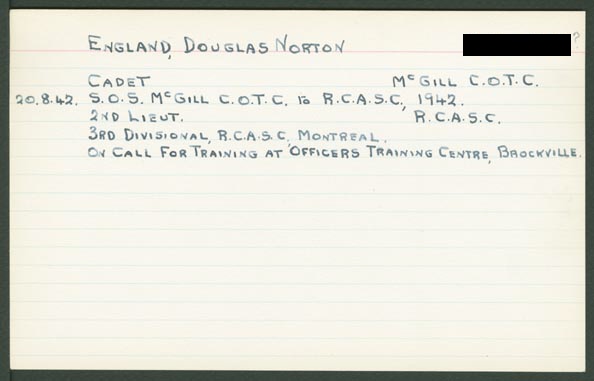 ENGLAND, DOUGLAS NORTON ?
CADET McGILL C.O.T.C.
20.8.42. S.O.S. McGILL C.O.T.C. to R.C.A.S.C, 1942.
2ND LIEUT. R.C.A.S.C.
3RD DIVISIONAL, R.C.A.S.C, MONTREAL.
ON CALL FOR TRAINING AT OFFICERS TRAINING CENTRE, BROCKVILLE.